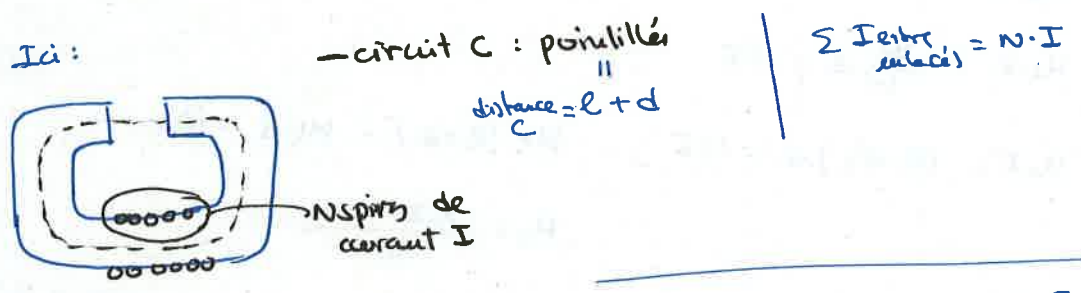 Ici :
— circuit C : pointillés
"
distance = l + d
C
Σ I = N · I
enlacés
N spires de
courant I